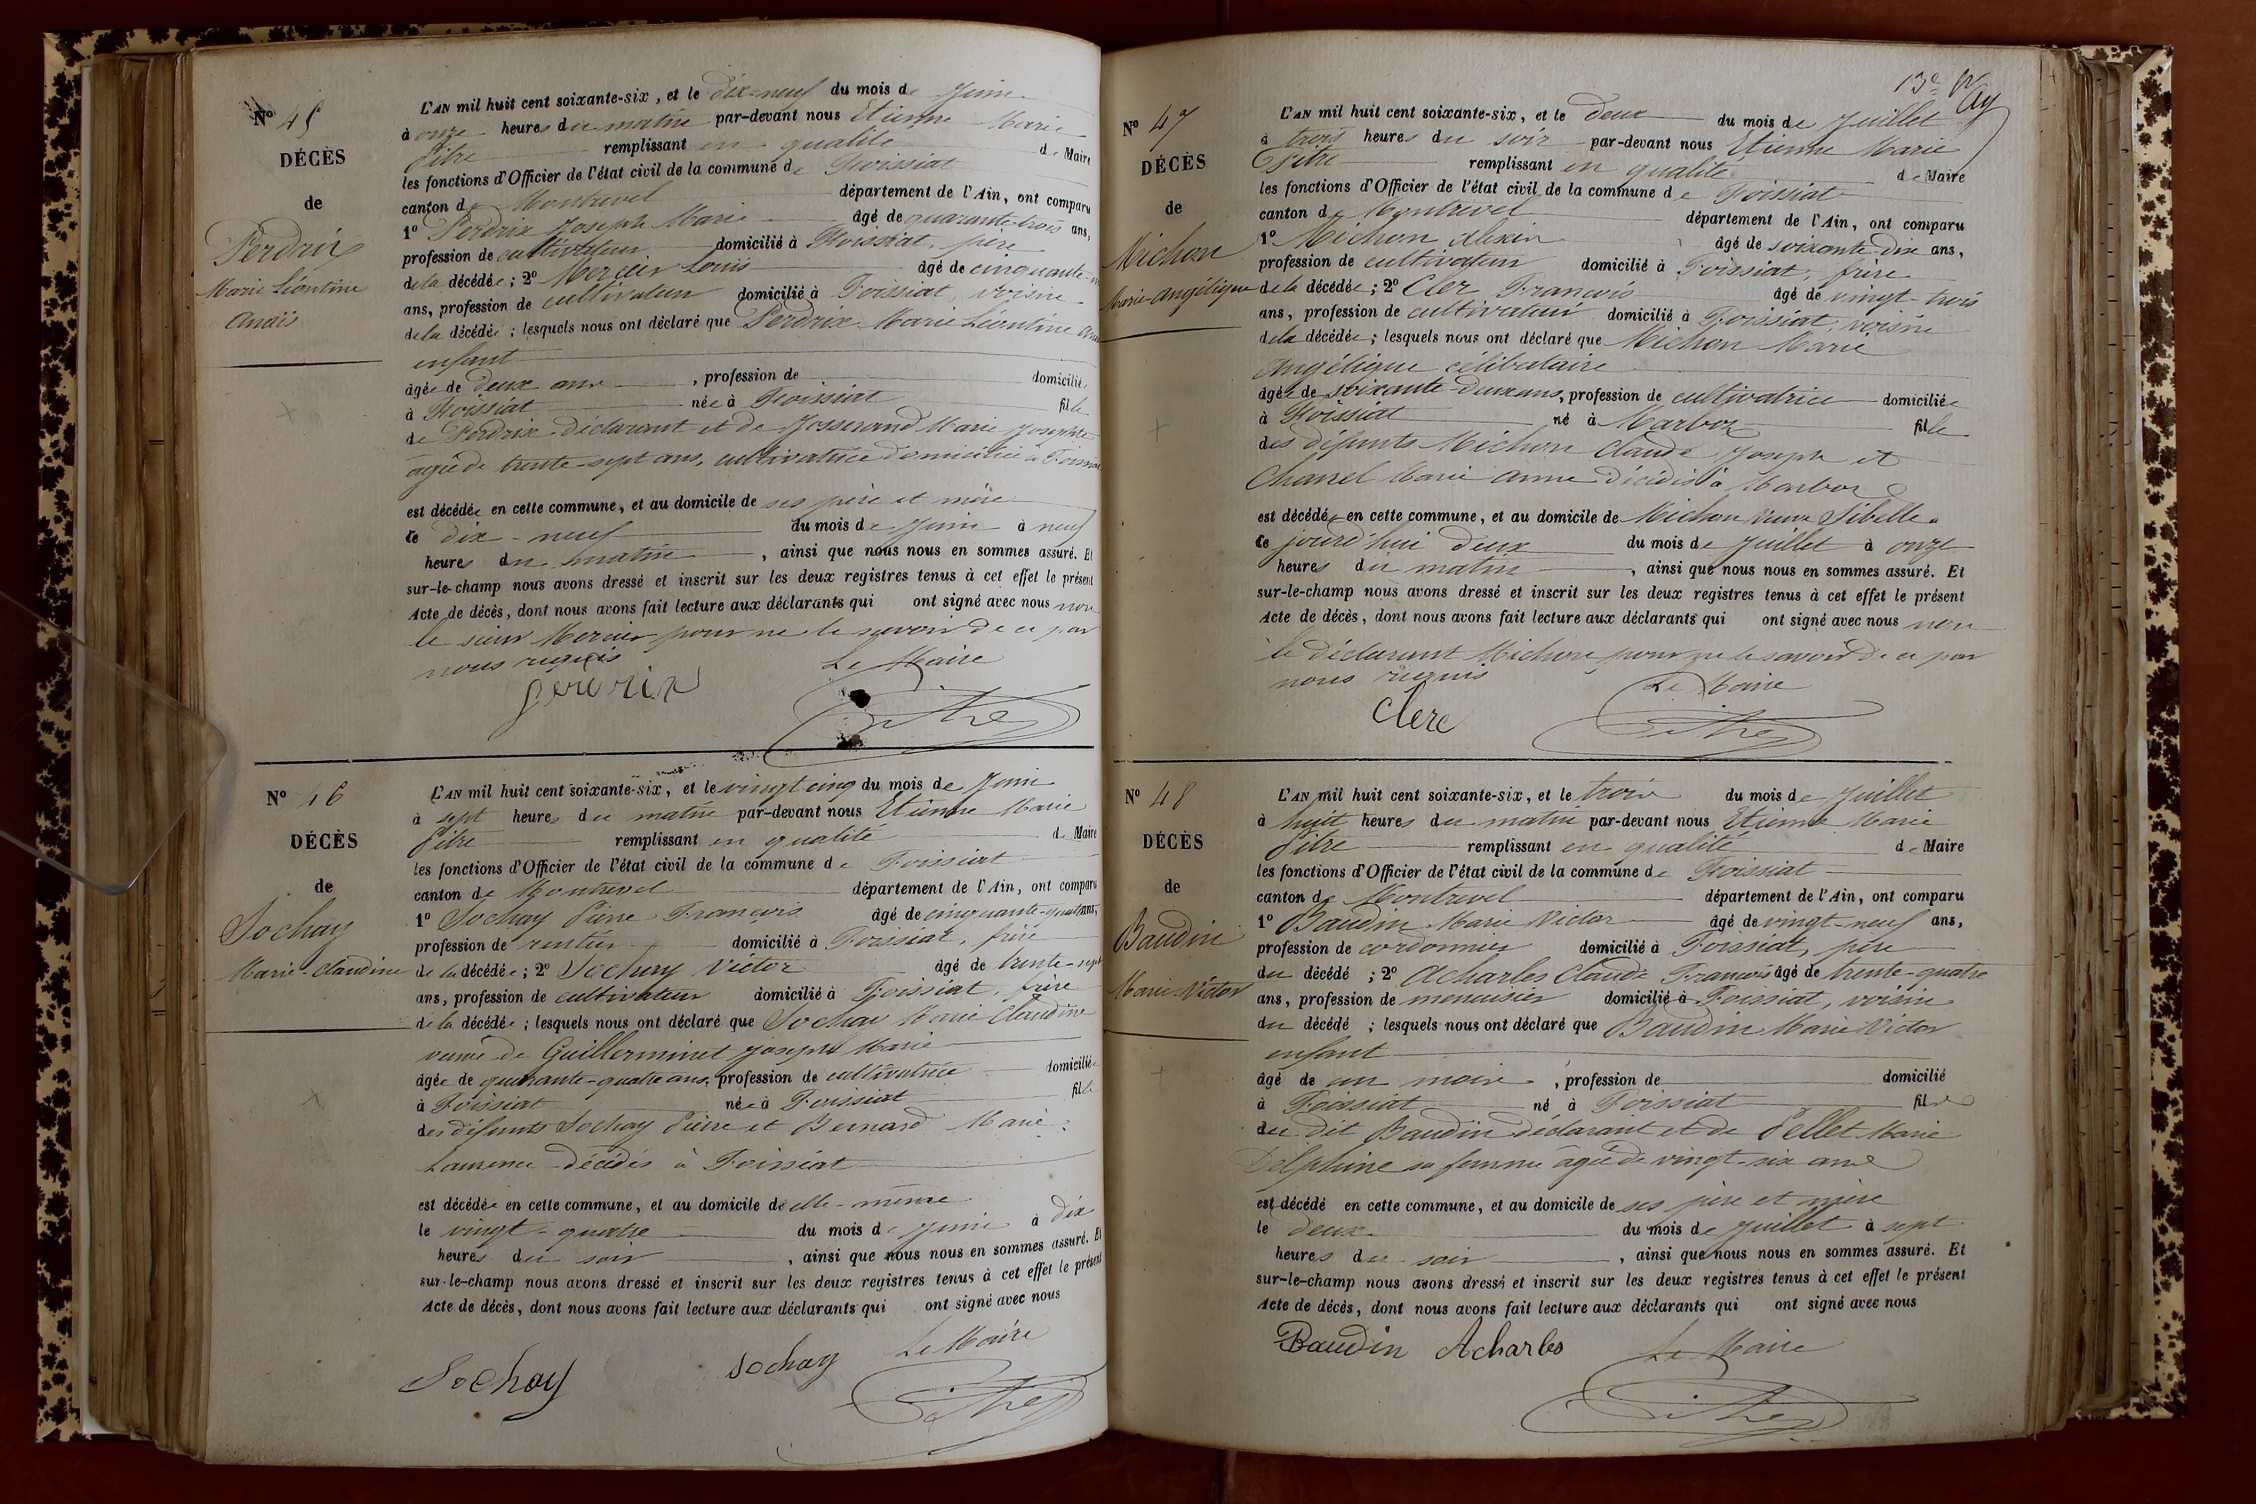 N° 45
DÉCÈS
de
Perdrix
Marie Léontine
Anaïs
L'AN mil huit cent soixante-six, et le dix-neuf du mois de Juin
à onze heures du matin par-devant nous Etienne Marie
Pitre remplissant en qualité de Maire
les fonctions d'Officier de l'état civil de la commune de Foissiat
canton de Montrevel département de l'Ain, ont comparu
1° Perdrix Joseph Marie âgé de quarante-trois ans,
profession de cultivateur domicilié à Foissiat, père
de la décédée ; 2° Mercier Louis âgé de cinquante
ans, profession de cultivateur domicilié à Foissiat, voisin
de la décédée ; lesquels nous ont déclaré que Perdrix Marie Léontine
enfant
âgée de deux ans , profession de domiciliée
à Foissiat née à Foissiat fille
de Perdrix déclarant et de Josserand Marie Josephte
agée de trente-sept ans, cultivatrice domiciliée à Foissiat
est décédée en cette commune, et au domicile de ses père et mère
le dix-neuf du mois de Juin à neuf
heures du matin , ainsi que nous nous en sommes assuré. Et
sur-le-champ nous avons dressé et inscrit sur les deux registres tenus à cet effet le présent
Acte de décès, dont nous avons fait lecture aux déclarants qui ont signé avec nous non
le sieur Mercier pour ne le savoir de ce par
nous requis Le Maire
perdrix Pitre
N° 46
DÉCÈS
de
Sochay
Marie-Claudine
L'AN mil huit cent soixante-six, et le vingt cinq du mois de Juin
à sept heures du matin par-devant nous Etienne Marie
Pitre remplissant en qualité de Maire
les fonctions d'Officier de l'état civil de la commune de Foissiat
canton de Montrevel département de l'Ain, ont comparu
1° Sochay Pierre François âgé de cinquante-quatre ans,
profession de rentier domicilié à Foissiat, frère
de la décédée ; 2° Sochay Victor âgé de trente-sept
ans, profession de cultivateur domicilié à Foissiat, frère
de la décédée ; lesquels nous ont déclaré que Sochay Marie Claudine
veuve de Guillerminet Joseph Marie
âgée de quarante-quatre ans, profession de cultivatrice domiciliée
à Foissiat née à Foissiat fille
des défunts Sochay Pierre et Bernard Marie
Laurence décédés à Foissiat
est décédée en cette commune, et au domicile d'elle-même
le vingt-quatre du mois de Juin à dix
heures du soir , ainsi que nous nous en sommes assuré. Et
sur-le-champ nous avons dressé et inscrit sur les deux registres tenus à cet effet le présent
Acte de décès, dont nous avons fait lecture aux déclarants qui ont signé avec nous
Le Maire
Sochay sochay Pitre
13e
N° 47
DÉCÈS
de
Michon
Marie-Angélique
L'AN mil huit cent soixante-six, et le deux du mois de Juillet
à trois heures du soir par-devant nous Etienne Marie
Pitre remplissant en qualité de Maire
les fonctions d'Officier de l'état civil de la commune de Foissiat
canton de Montrevel département de l'Ain, ont comparu
1° Michon Alexin âgé de soixante-dix ans,
profession de cultivateur domicilié à Foissiat, frère
de la décédée ; 2° Clerc François âgé de vingt-trois
ans, profession de cultivateur domicilié à Foissiat, voisin
de la décédée ; lesquels nous ont déclaré que Michon Marie
Angélique célibataire
âgée de soixante-deux ans, profession de cultivatrice domiciliée
à Foissiat né à Marboz fille
des défunts Michon Claude Joseph et
Chanel Marie Anne décédés à Marboz
est décédée en cette commune, et au domicile de Michon veuve Sibelle
ce jourd'hui deux du mois de Juillet à onze
heures du matin , ainsi que nous nous en sommes assuré. Et
sur-le-champ nous avons dressé et inscrit sur les deux registres tenus à cet effet le présent
Acte de décès, dont nous avons fait lecture aux déclarants qui ont signé avec nous non
le déclarant Michon pour ne le savoir de ce par
nous requis Le Maire
Clerc Pitre
N° 48
DÉCÈS
de
Baudin
Marie Victor
L'AN mil huit cent soixante-six, et le trois du mois de Juillet
à huit heures du matin par-devant nous Etienne Marie
Pitre remplissant en qualité de Maire
les fonctions d'Officier de l'état civil de la commune de Foissiat
canton de Montrevel département de l'Ain, ont comparu
1° Baudin Marie Victor âgé de vingt-neuf ans,
profession de cordonnier domicilié à Foissiat, père
du décédé ; 2° Acharles Claude François âgé de trente-quatre
ans, profession de menuisier domicilié à Foissiat, voisin
du décédé ; lesquels nous ont déclaré que Baudin Marie Victor
enfant
âgé de un mois , profession de domicilié
à Foissiat né à Foissiat fils
du dit Baudin déclarant et de Pellet Marie
Delphine sa femme agée de vingt-six ans
est décédé en cette commune, et au domicile de ses père et mère
le deux du mois de Juillet à sept
heures du soir , ainsi que nous nous en sommes assuré. Et
sur-le-champ nous avons dressé et inscrit sur les deux registres tenus à cet effet le présent
Acte de décès, dont nous avons fait lecture aux déclarants qui ont signé avec nous
Baudin Acharles Le Maire
Pitre